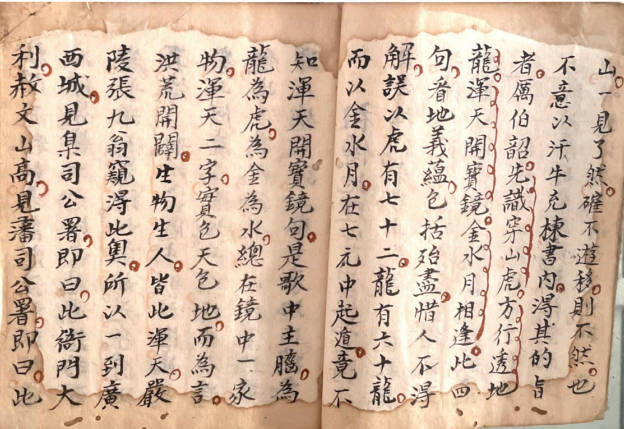 山一見了然確不遊移則不然也
不意以汗牛充棟書內淂其的旨
者厲伯韶先識穿山虎方行透地
龍渾天開寶鏡金水月相逢此四
句㫖地義蘊包括殆盡惜人不淂
解誤以虎有七十二龍有六十龍
而以金水月在七元中起遁竟不
知渾天開寶鏡句是歌中主腦為
龍為虎為金為水總在鏡中一家
物渾天二字實包天包地而為言
洪荒開闢生物生人皆此渾天嚴
陵張九翁窺淂此奧所以一到廣
西城見臬司公署即曰此衙門大
利赦文山高見藩司公署即曰此